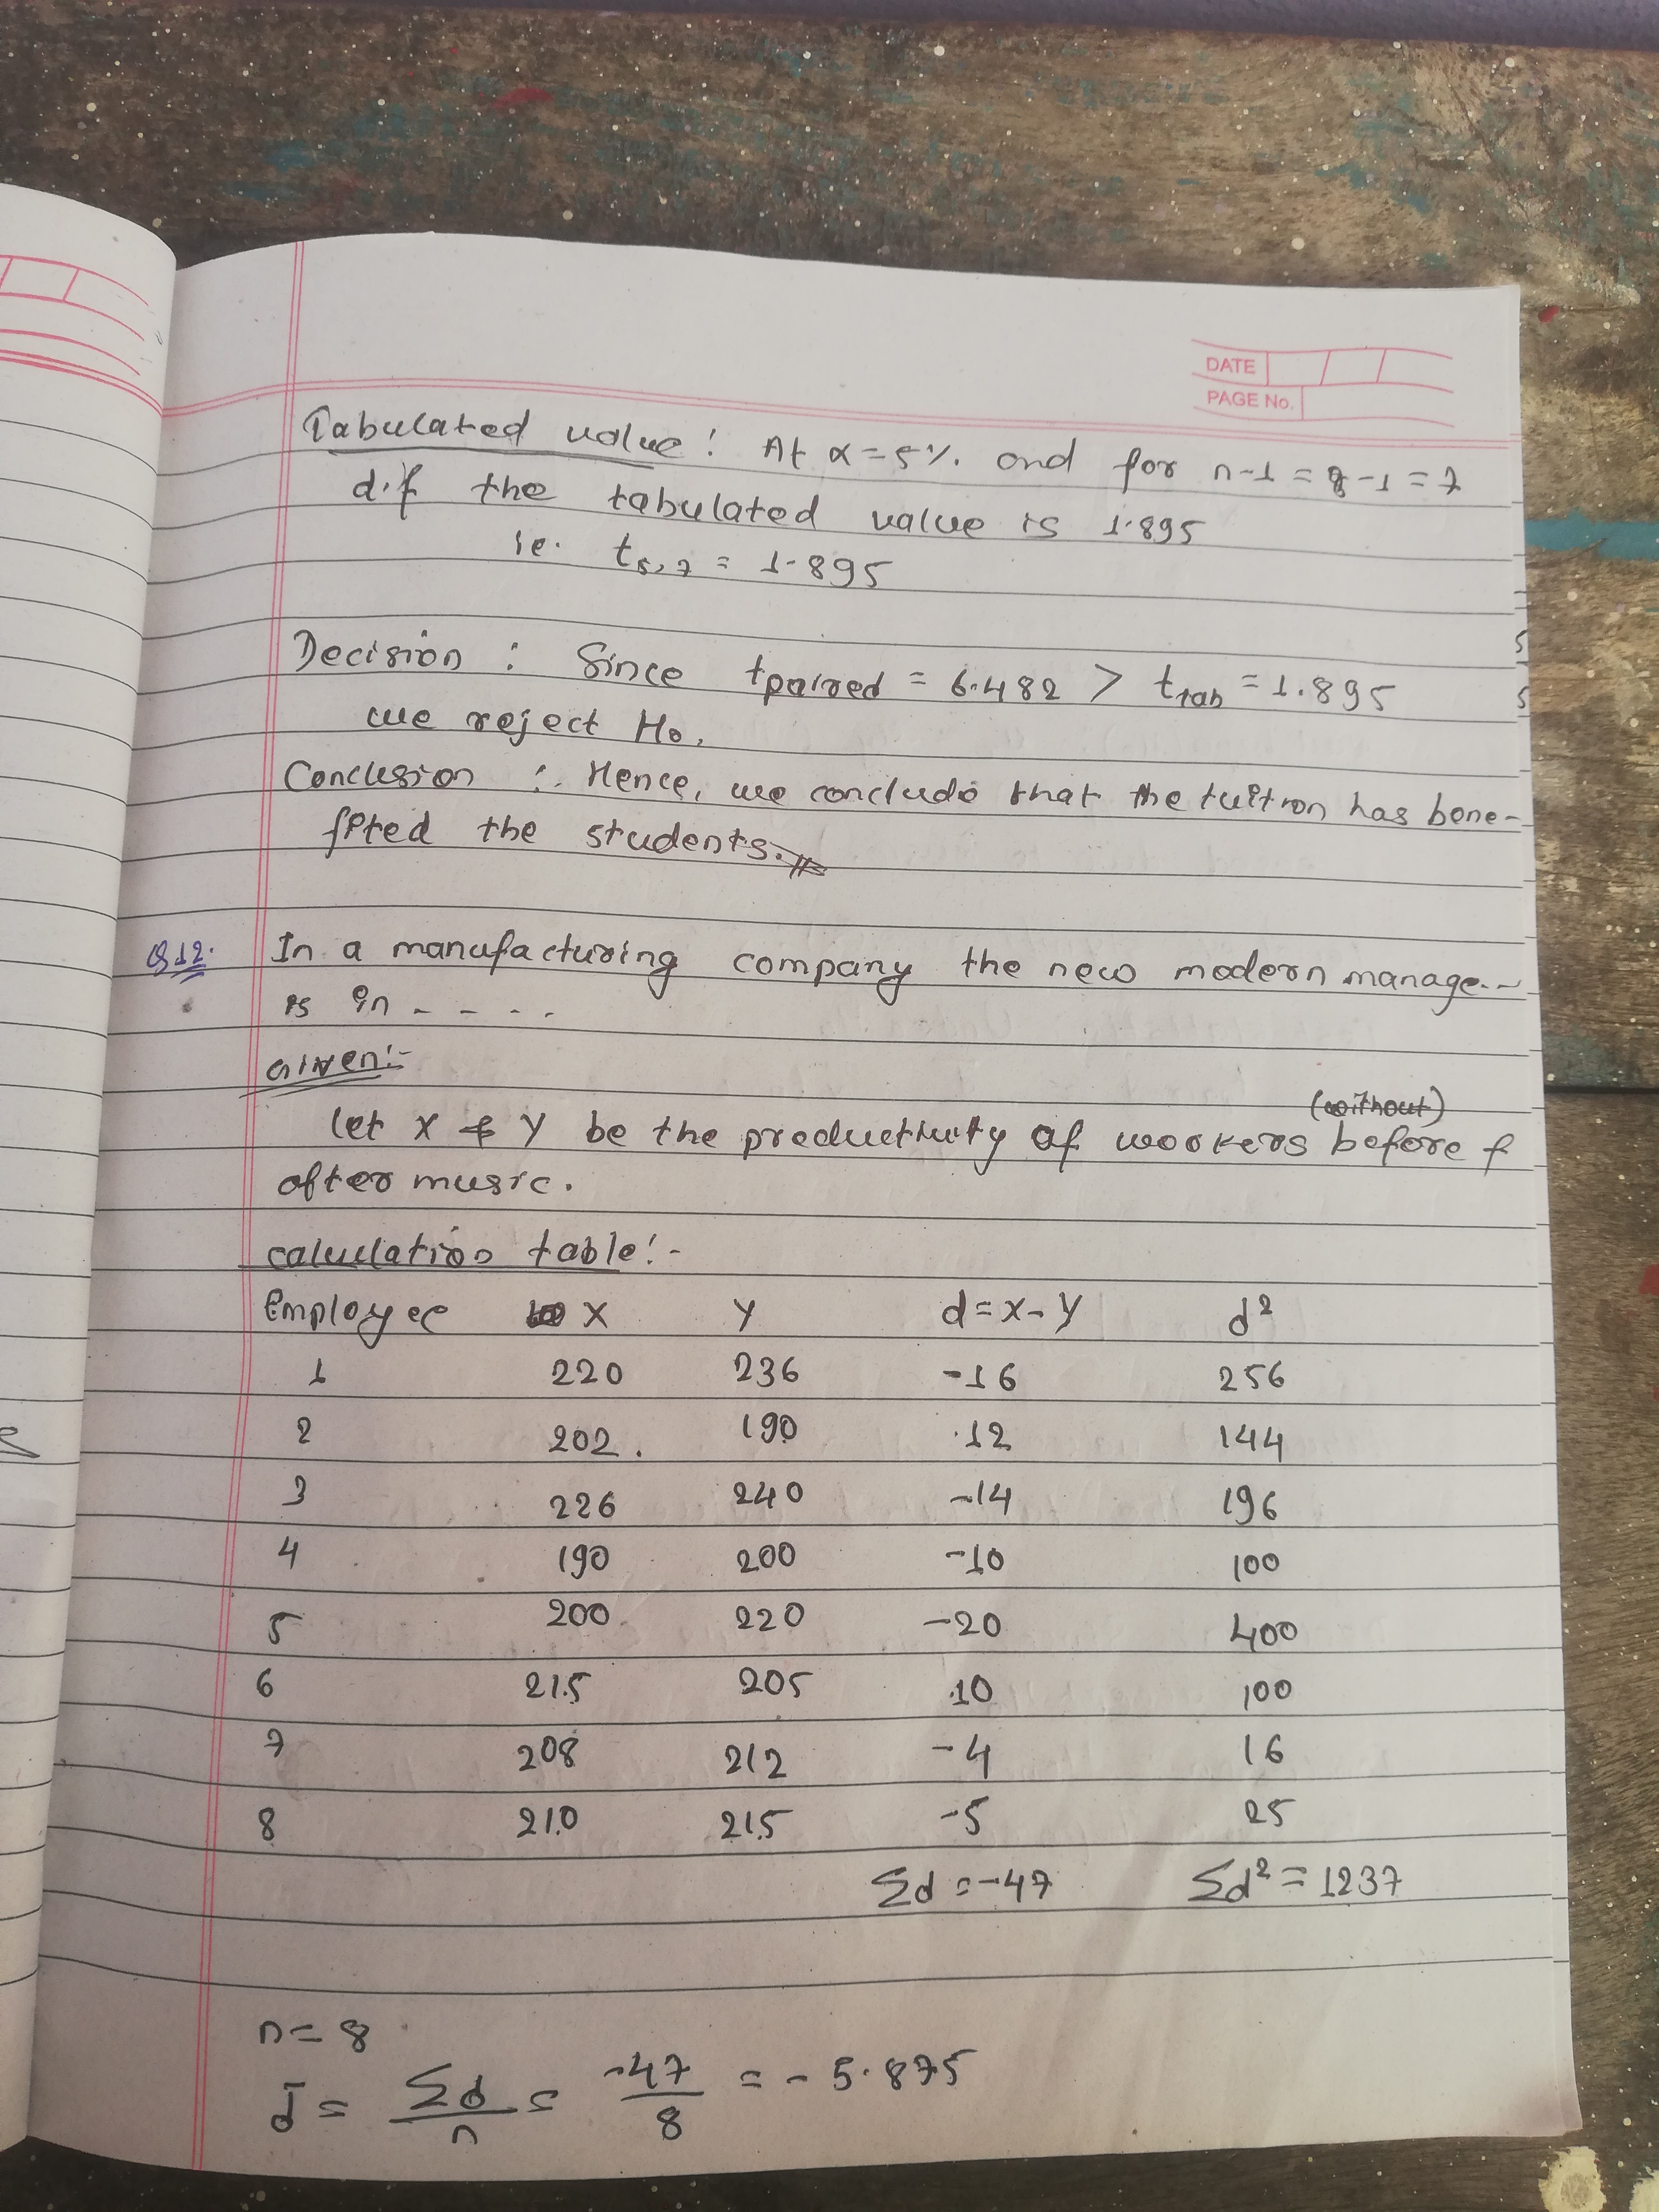 DATE
PAGE No.
Tabulated value : At α = 5% and for n-1 = 8-1 = 7
d.f the tabulated value is 1.895
ie. t5,7 = 1.895
Decision : Since tpaired = 6.482 > ttab = 1.895
we reject Ho.
Conclusion :. Hence, we conclude that the tuition has bene-
fited the students.
Q12. In a manufacturing company the new modern manage..
is in - - - -
Given:-
(without)
Let X & Y be the productivity of workers before &
after music.
calculation table:-
Employee X Y d = X - Y d²
1 220 236 -16 256
2 202 190 12 144
3 226 240 -14 196
4 190 200 -10 100
5 200 220 -20 400
6 215 205 10 100
7 208 212 -4 16
8 210 215 -5 25
Σd = -47 Σd² = 1237
n = 8
d̄ = Σd/n = -47/8 = -5.875